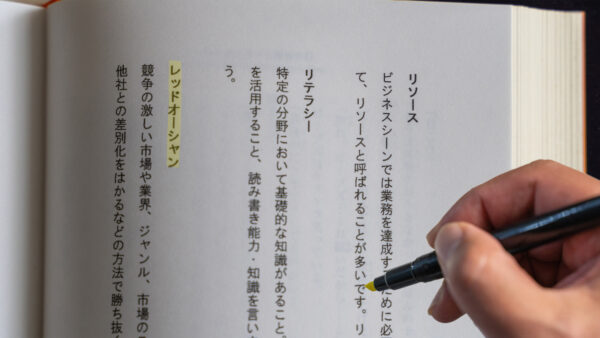 リソース
ビジネスシーンでは業務を達成す ために必
て、リソースと呼ばれることが多いです。リ
リテラシー
特定の分野において基礎的な知識があること。
を活用すること、読み書き能力・知識を言い
う。
レッドオーシャン
競争の激しい市場や業界、ジャンル、市場の
他社との差別化をはかるなどの方法で勝ち抜